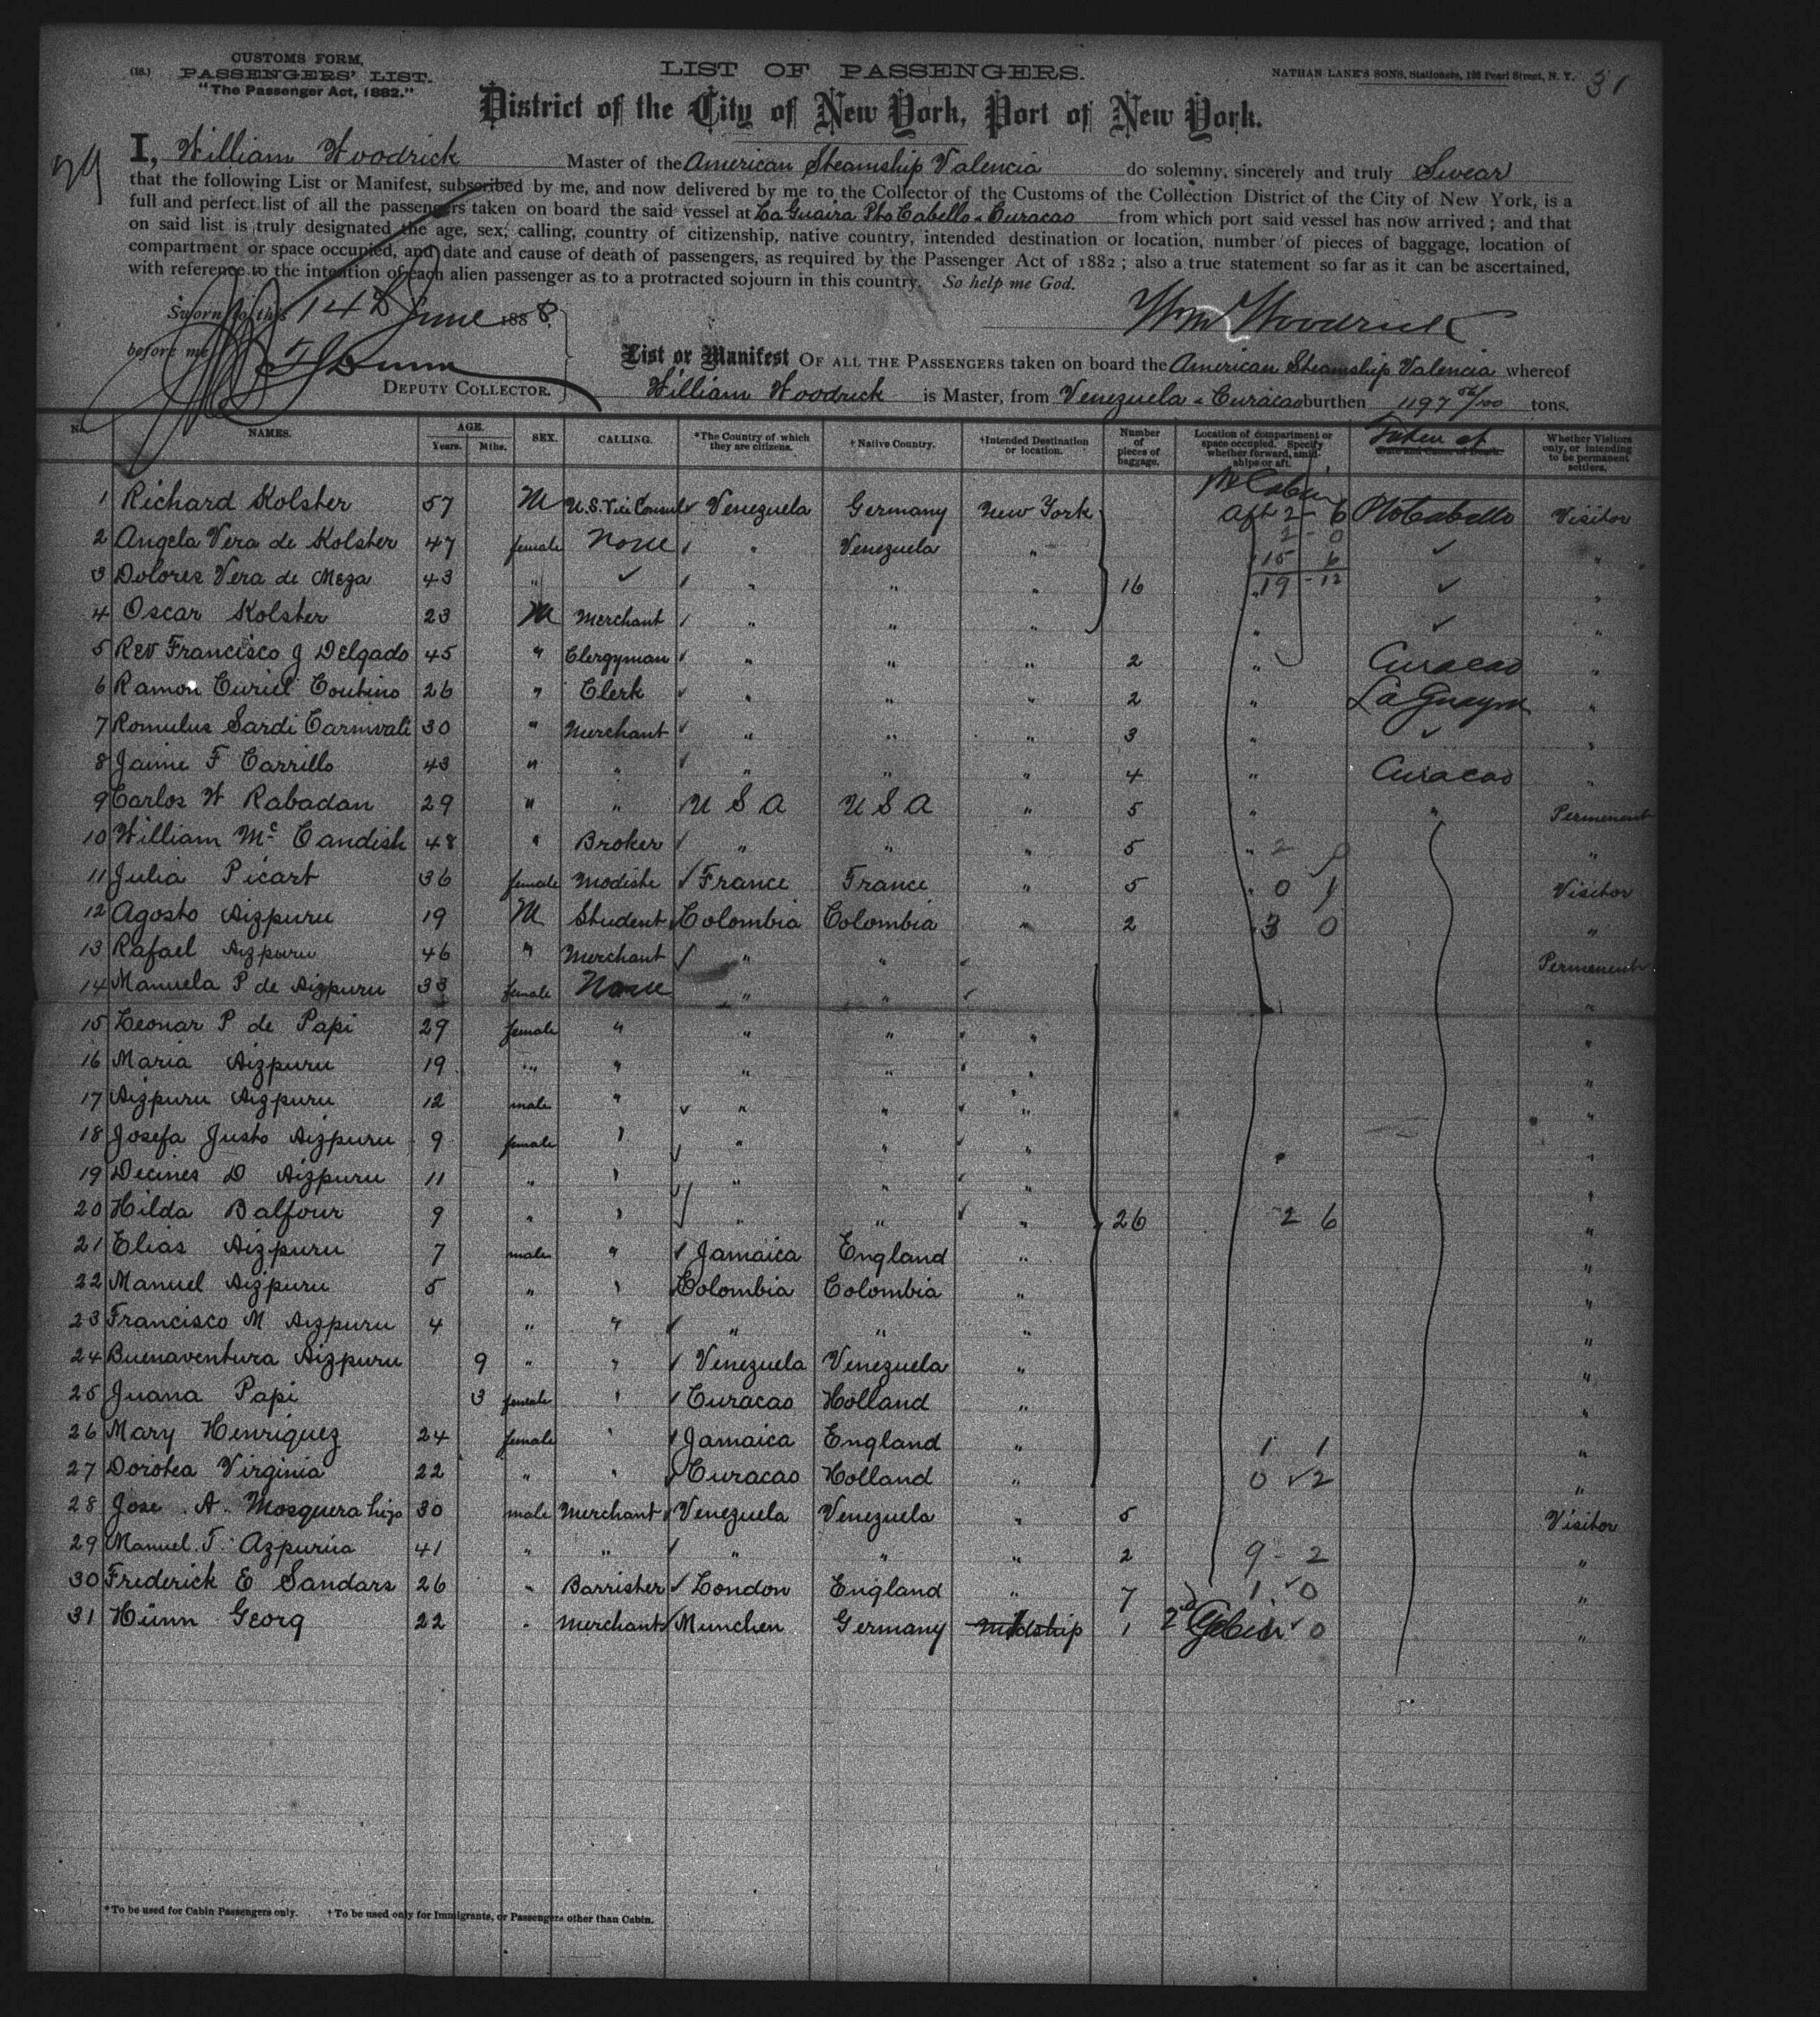 CUSTOMS FORM,
(18.) PASSENGERS' LIST.
"The Passenger Act, 1882."
LIST OF PASSENGERS.
NATHAN LANE'S SONS, Stationers, 138 Pearl Street, N. Y. 31
District of the City of New York, Port of New York.
29
I, William Woodrick Master of the American Steamship Valencia do solemny, sincerely and truly Swear
that the following List or Manifest, subscribed by me, and now delivered by me to the Collector of the Customs of the Collection District of the City of New York, is a
full and perfect list of all the passengers taken on board the said vessel at La Guaira Pto Cabello & Curacao from which port said vessel has now arrived; and that
on said list is truly designated the age, sex, calling, country of citizenship, native country, intended destination or location, number of pieces of baggage, location of
compartment or space occupied, and date and cause of death of passengers, as required by the Passenger Act of 1882; also a true statement so far as it can be ascertained,
with reference to the intention of each alien passenger as to a protracted sojourn in this country. So help me God.
Sworn to this 14th June 1888.
Wm Woodrick
before me
Dunn
DEPUTY COLLECTOR.
List or Manifest OF ALL THE PASSENGERS taken on board the American Steamship Valencia whereof
William Woodrick is Master, from Venezuela & Curacao burthen 1197 56/100 tons.
No. NAMES. AGE. Years. Mths. SEX. CALLING. *The Country of which they are citizens. †Native Country. †Intended Destination or location. Number of pieces of baggage. Location of compartment or space occupied. Specify whether forward, amidships or aft. Date and Cause of Death. Taken at Whether Visitors only, or intending to be permanent settlers.
1 Richard Kolster 57 M U.S. Vice Consul Venezuela Germany New York Aft 2-6 Pto Cabello Visitor
2 Angela Vera de Kolster 47 female None " Venezuela " 2-0 ✓ "
15 6
3 Dolores Vera de Meza 43 " ✓ " " " 16 " 19-12 ✓ "
4 Oscar Kolster 23 M Merchant " " " " ✓ "
5 Rev Francisco J Delgado 45 " Clergyman " " " 2 " Curacao "
6 Ramon Curiel Coutino 26 " Clerk " " " 2 " La Guayra "
7 Romulus Sardi Carnivali 30 " Merchant " " " 3 " ✓ "
8 Jaime F Carrillo 43 " " " " " 4 " Curacao "
9 Carlos W Rabadan 29 " " U S A U S A " 5 " " Permenent
10 William Mc Candish 48 " Broker " " " 5 " 2 "
11 Julia Picart 36 female Modiste France France " 5 " 0 1 Visitor
12 Agosto Aizpuru 19 M Student Colombia Colombia " 2 " 3 0 "
13 Rafael Aizpuru 46 " Merchant " " Permenent
14 Manuela P de Aizpuru 33 female None " " "
15 Leonar P de Papi 29 female " " " " "
16 Maria Aizpuru 19 " " " " " "
17 Aizpuru Aizpuru 12 male " " " " "
18 Josefa Justo Aizpuru 9 female " " " " "
19 Decines D Aizpuru 11 " " " " " "
20 Hilda Balfour 9 " " " " " 26 2 6 "
21 Elias Aizpuru 7 male " Jamaica England " "
22 Manuel Aizpuru 5 " " Colombia Colombia " "
23 Francisco M Aizpuru 4 " " " " " "
24 Buenaventura Aizpuru 9 " " Venezuela Venezuela " "
25 Juana Papi 3 female " Curacao Holland " "
26 Mary Henriquez 24 female " Jamaica England " 1 1 "
27 Dorotea Virginia 22 " " Curacao Holland " 0 2 "
28 Jose A. Mosquera hijo 30 male Merchant Venezuela Venezuela " 5 Visitor
29 Manuel T. Azpurúa 41 " " " " " 2 9-2 "
30 Frederick E Sandars 26 " Barrister London England " 7 1 0 "
31 Hünn Georg 22 " Merchant Munchen Germany Midship 1 2d Cabin 0 "
*To be used for Cabin Passengers only. †To be used only for Immigrants, or Passengers other than Cabin.